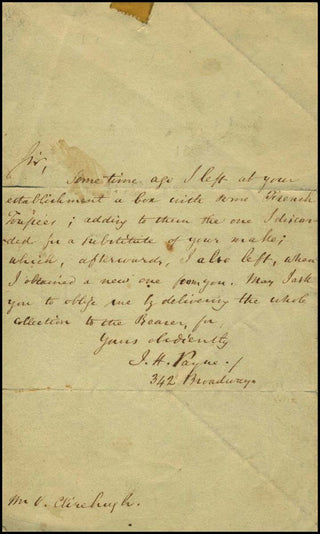 Sir,
Some time ago I left at your
establishment a box with some French
Toupees; adding to them the one I discar-
ded for a substitute of your make;
which, afterwards, I also left, when
I obtained a new one from you. May I ask
you to oblige me by delivering the whole
collection to the Bearer, for,
Yours obediently
J. H. Payne.
342 Broadway.
Mr V. Clirehugh.